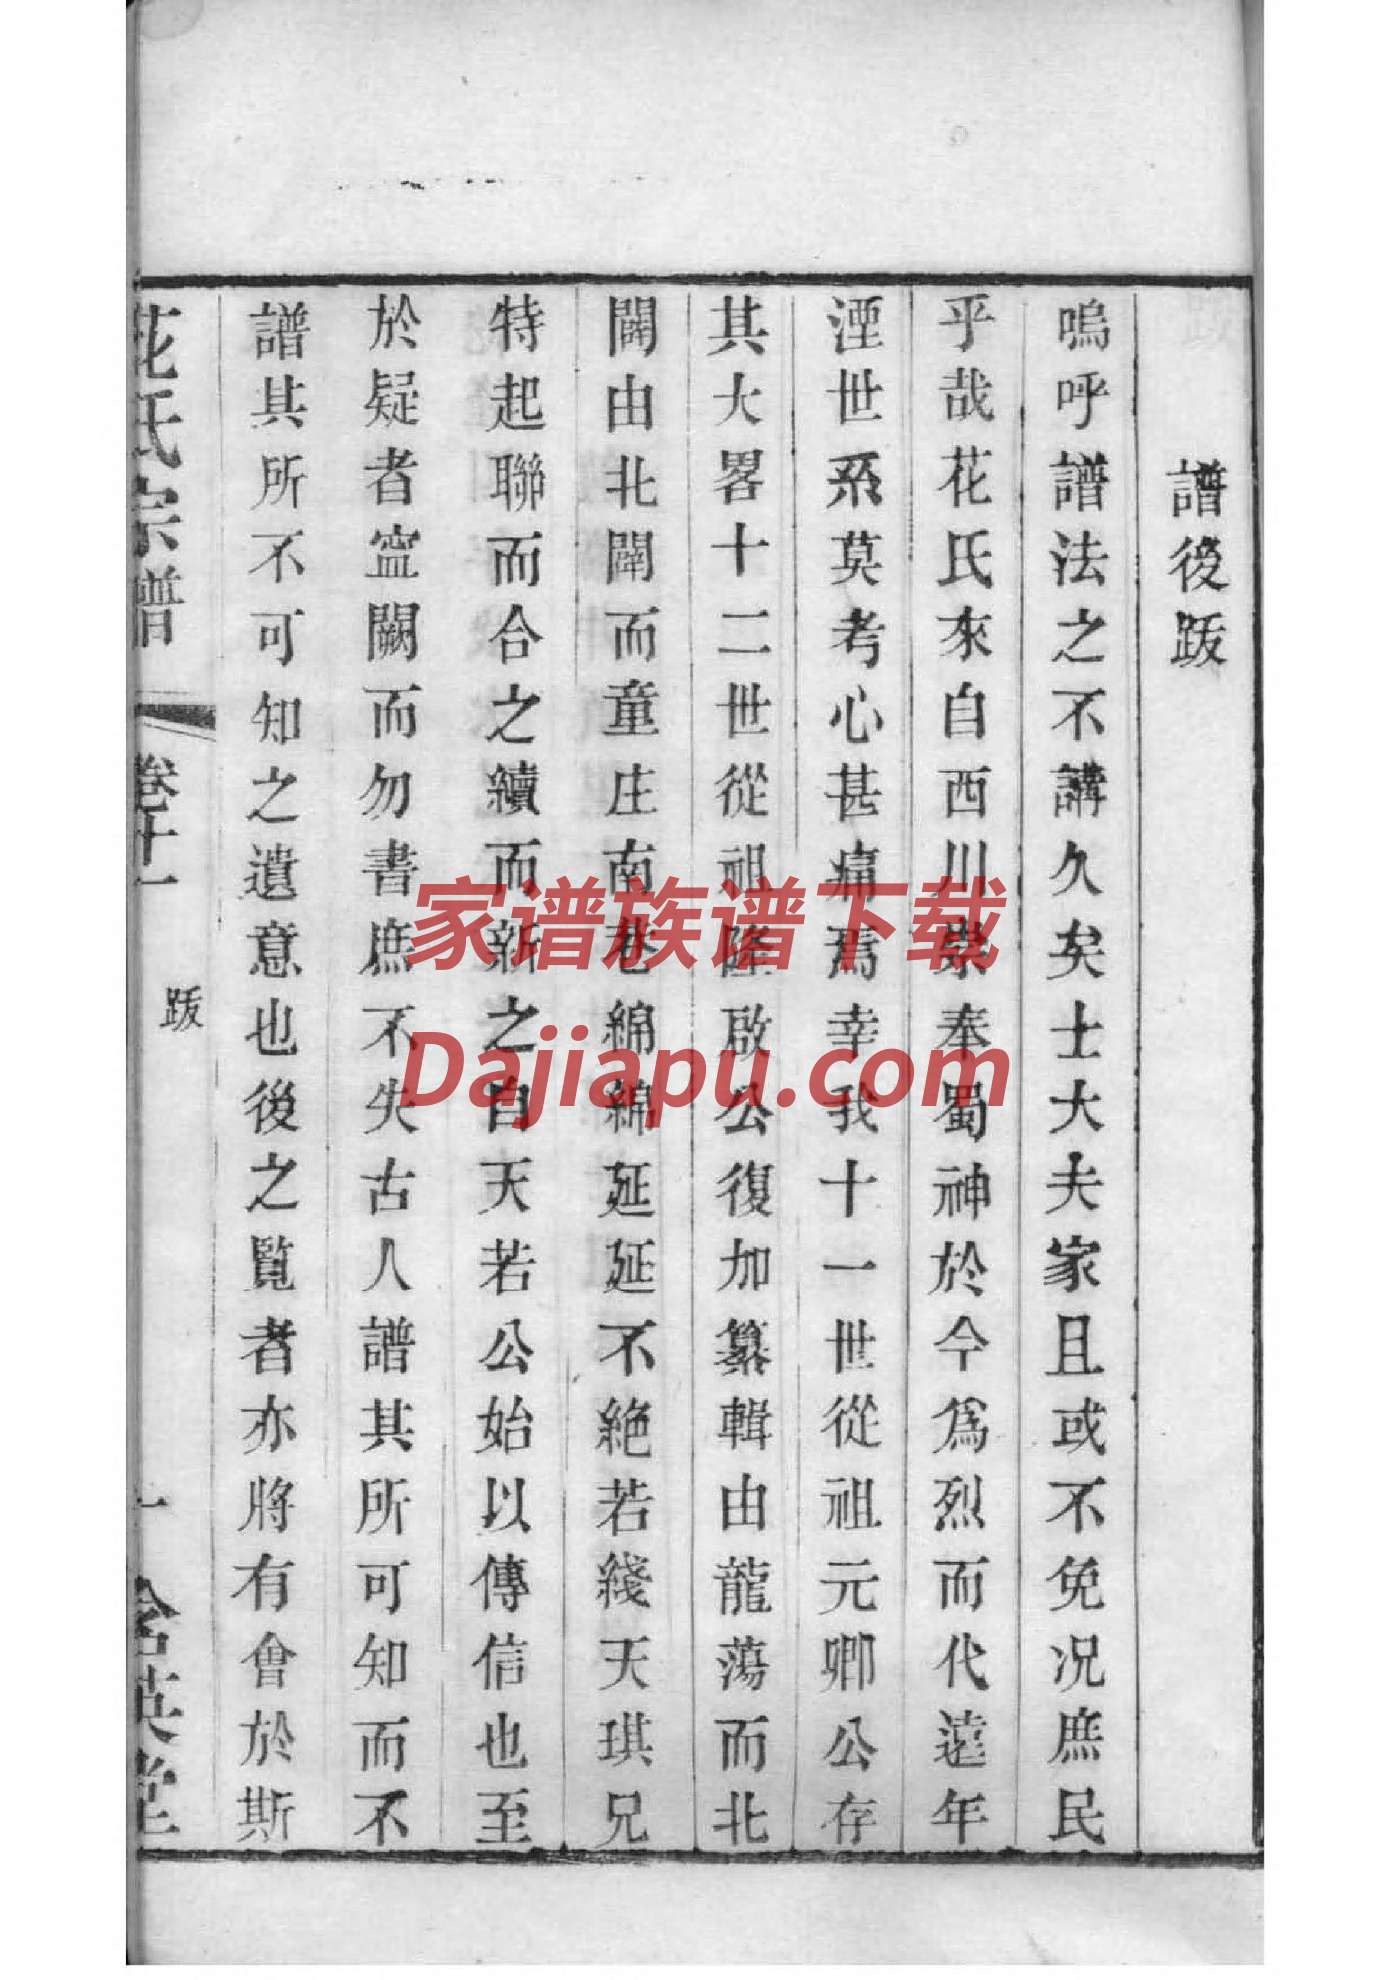 譜後跋
嗚呼譜法之不講久矣士大夫家且或不免况庶民
乎哉花氏來自西川崇奉蜀神於今爲烈而代遠年
湮世系莫考心甚痛焉幸我十一世從祖元卿公存
其大畧十二世從祖隆啟公復加纂輯由龍蕩而北
闢由北闢而童庄南巷綿綿延延不絶若綫天琪兄
特起聯而合之續而新之自天若公始以傳信也至
於疑者寍闕而勿書庶不失古人譜其所可知而不
譜其所不可知之遺意也後之覧者亦將有會於斯
花氏宗譜
卷十一
跋
一
含英堂
家谱族谱下载
Dajiapu.com